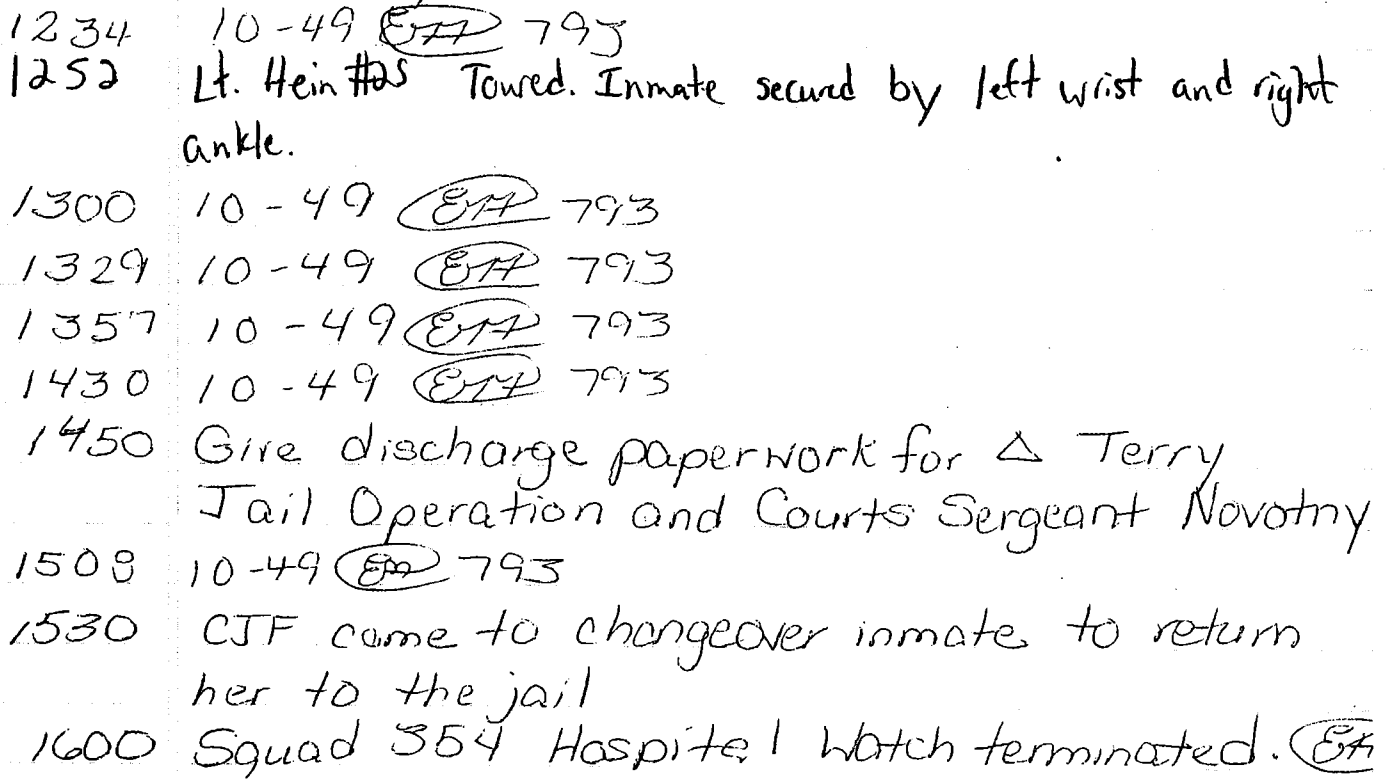 1234 10-49 793
1252 Lt. Hein #25 Toured. Inmate secured by left wrist and right
ankle.
1300 10-49 793
1329 10-49 793
1357 10-49 793
1430 10-49 793
1450 Give discharge paperwork for Δ Terry
Jail Operation and Courts Sergeant Novotny
1508 10-49 793
1530 CJF came to changeover inmate to return
her to the jail
1600 Squad 354 Hospital Watch terminated.